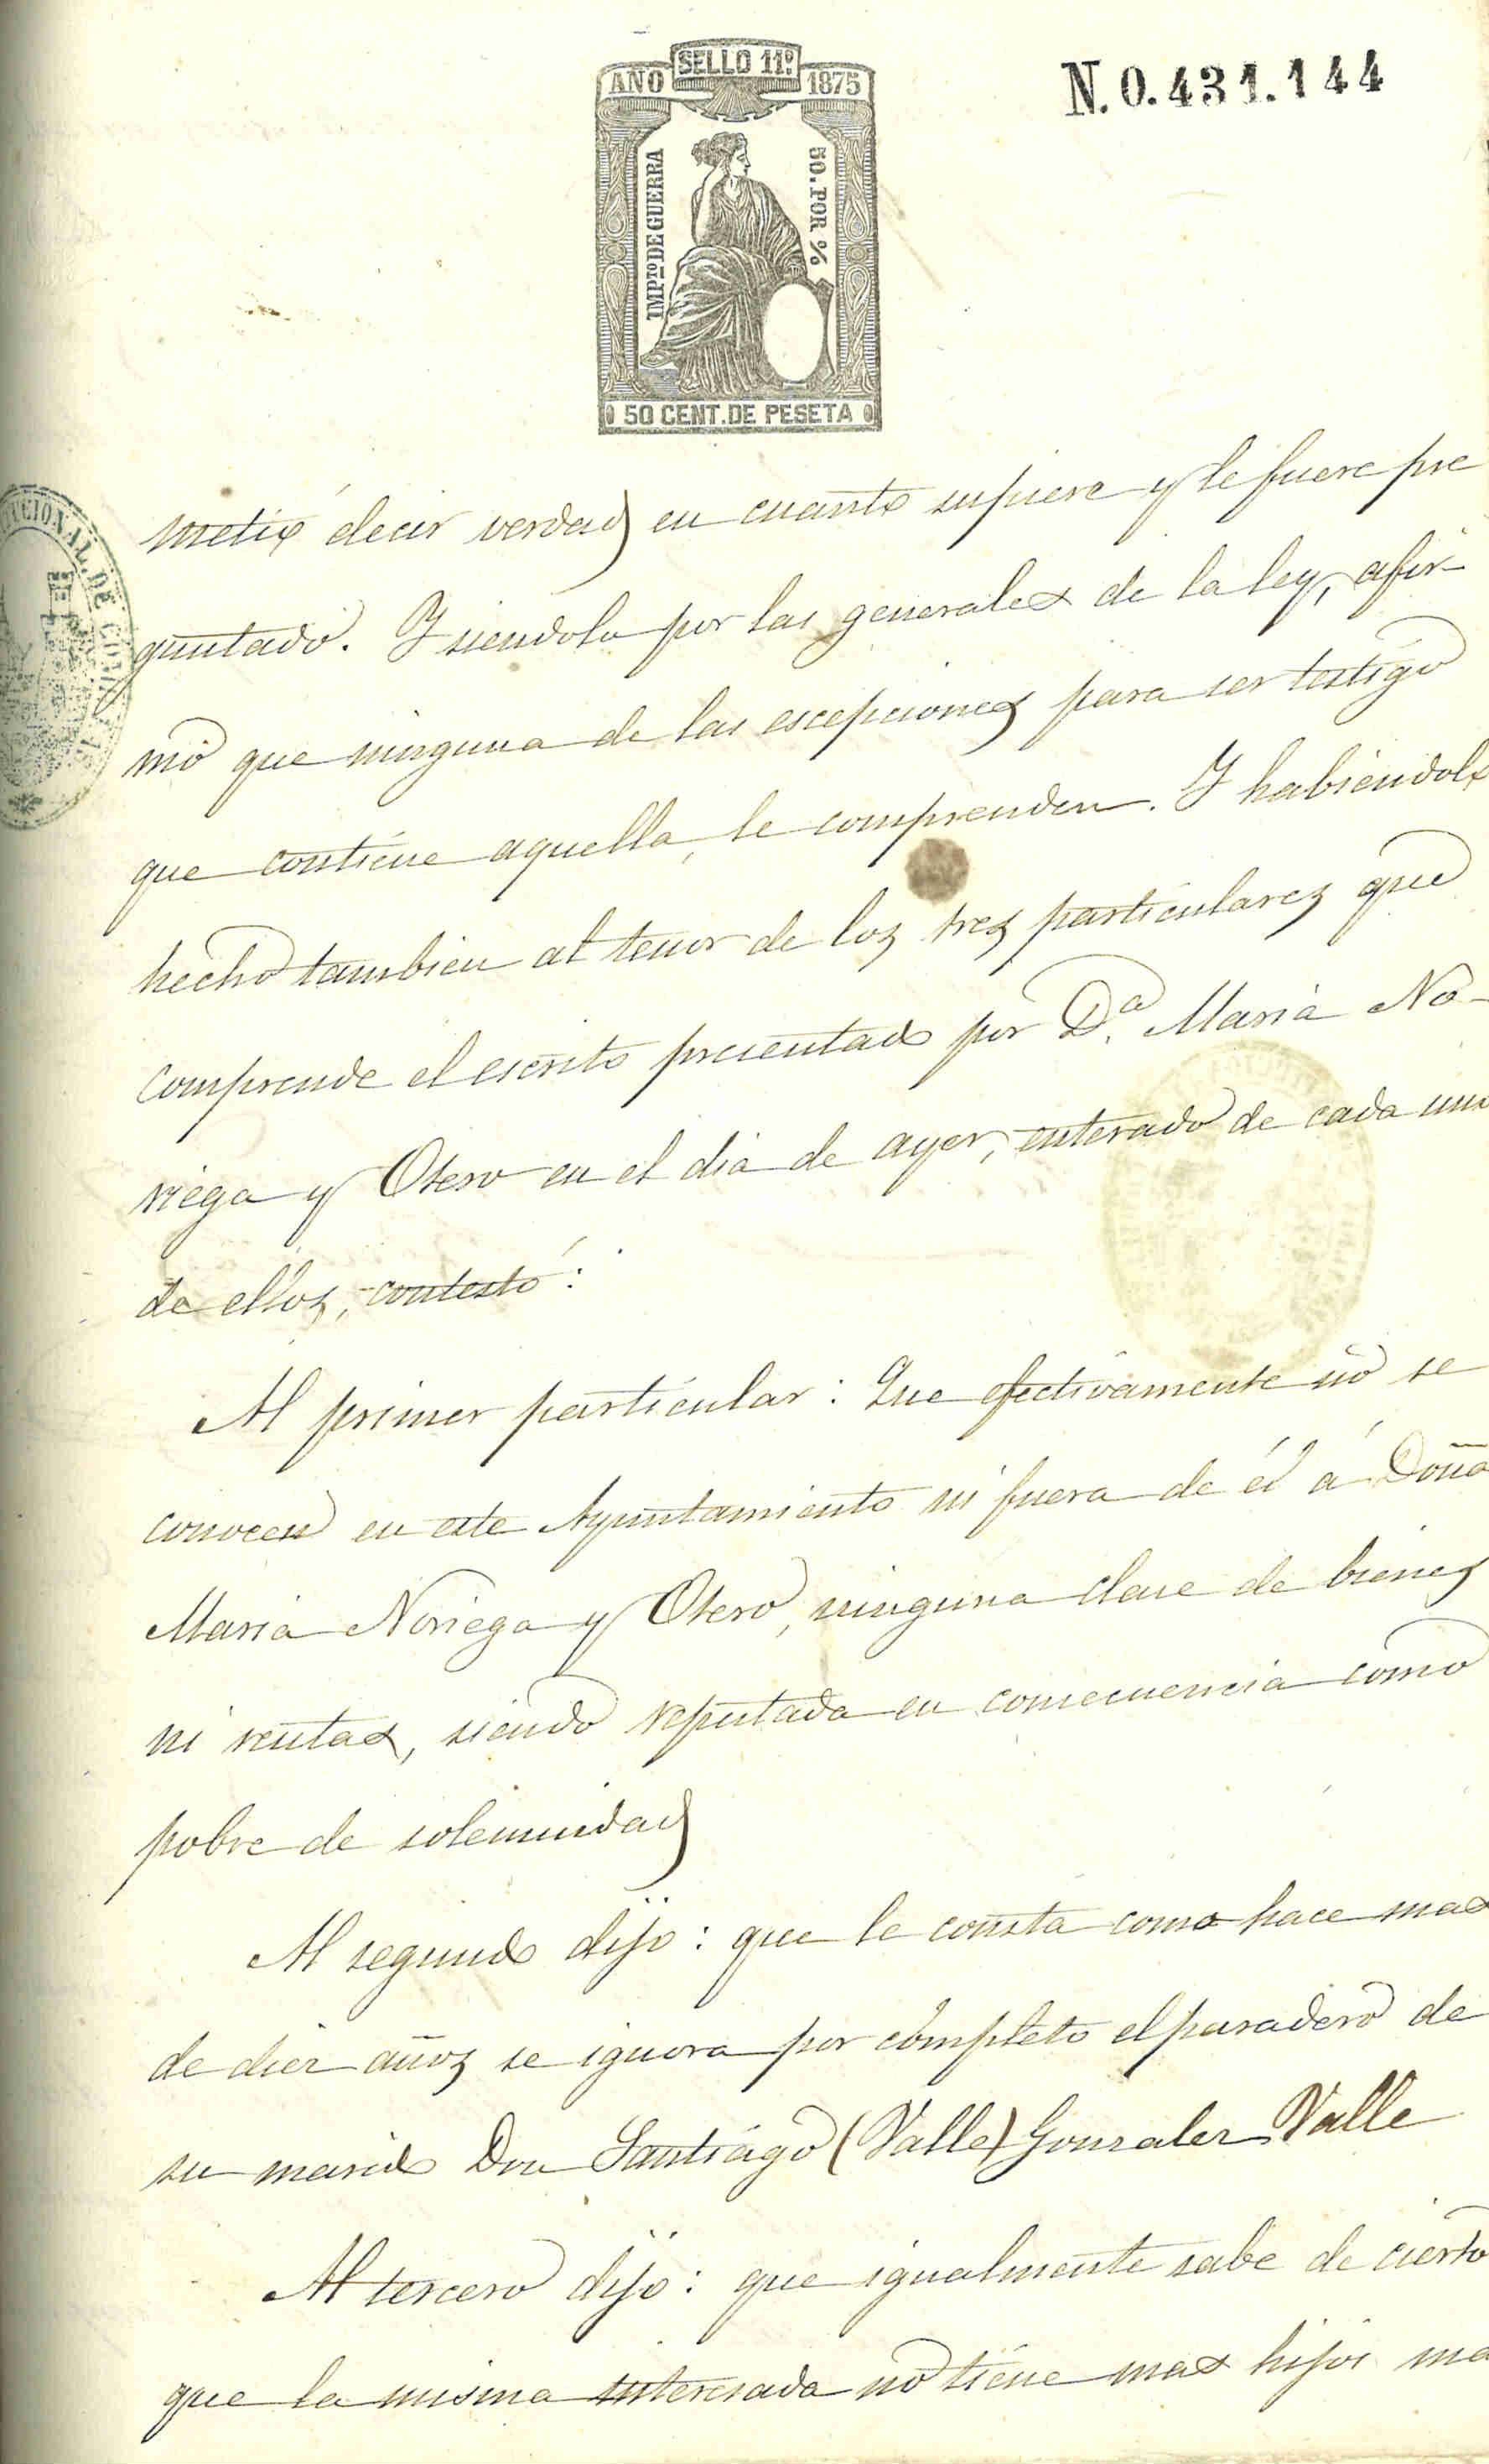 N.0.431.144
SELLO 11º
AÑO 1875
IMPTO DE GUERRA
50. POR %
50 CENT. DE PESETA
CIONAL. DE
metió decir verdad en cuanto supiere y le fuere pre
guntado. Y siendolo por las generales de la ley, afir-
mó que ninguna de las escepciones para ser testigo
que contiene aquella, le comprenden. Y habiéndolo
hecho tambien al tenor de los tres particulares que
comprende el escrito presentado por D.ª Maria No-
riega y Otero en el dia de ayer, enterado de cada uno
de ellos, contestó:
Al primer particular: Que efectivamente no se
conocen en este Ayuntamiento ni fuera de él á Doña
Maria Noriega y Otero, ninguna clase de bienes
ni rentas, siendo reputada en consecuencia como
pobre de solemnidad
Al segundo dijo: que le consta como hace mas
de diez años se ignora por completo el paradero de
su marido Don Santiago (Valle) Gonzalez Valle
Al tercero dijo: que igualmente sabe de cierto
que la misma interesada no tiene mas hijos ma